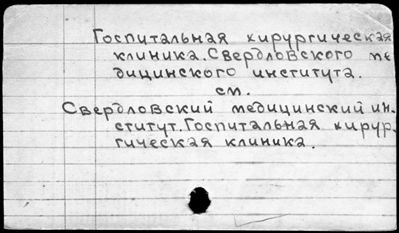 Госпитальная хирургическая
клиника. Свердловского ме
дицинского института.
см.
Свердловский медицинский ин-
ститут. Госпитальная хирур-
гическая клиника.